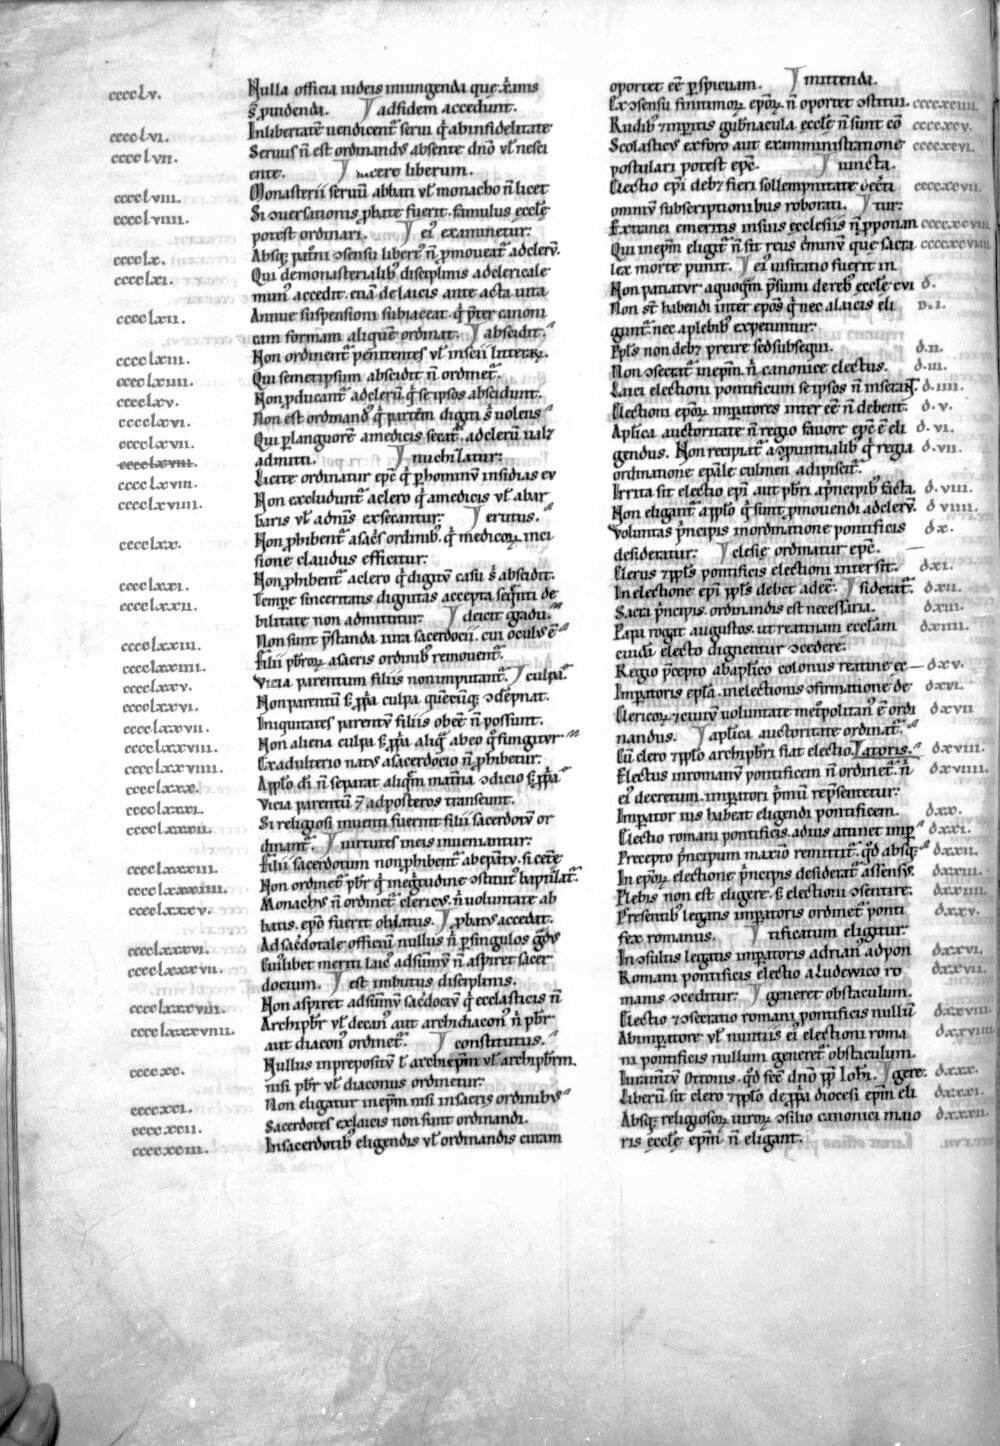 ccccLv. Nulla officia iudeis iniungenda que xp̄ianis
s̄ puidenda. ad fidem accedunt.
ccccLvi. In libertatē uendicent̄ serui q̇ ab infidelitate
ccccLvii. Seruus n̄ est ordinandꝰ absente dn̄o ut̄ nesci
ente. lucere liberum.
ccccLviii. Monasterii seruū abbati ut̄ monacho n̄ licet
ccccLviiii. Si ↄuersationis ꝓbate fuerit famulus ecclē
potest ordinari. eiꝰ examinetur:
ccccLx. Absq; pat̄ni ↄsensu libert̄ n̄ ꝓmoueat̄ ad cler̄v.
ccccLxi. Qui de monasterialibꝰ disciplinis ad clericale
munꝰ accedit. etiā de laicis ante acta uita
ccccLxii. Annue suspensioni subiaceat q̇ p̄ter canoni
cam formam aliquē ordinat. abscidit.
ccccLxiii. Non ordinent̄ penitentes ut̄ inscii litterarꝝ.
ccccLxiiii. Qui semetipsum abscidit n̄ ordinet̄.
ccccLxv. Non ꝓducant̄ ad clerū q̇ se ipsos abscidunt.
ccccLxvi. Non est ordandꝰ q̇ partēm digiti s̄ uolens
ccccLxvii. Qui ꝑ languorē a medicis secat̄. ad clerū ualꝫ
ccccLxviii. admitti. nuchilatur:
ccccLxviii. Licite ordinatur ep̄c q̇ ꝑ hominv̄ insidias ev
ccccLxviiii. Non excludunt̄ a clero q̇ a medicis ut̄ a bar
baris ut̄ a dn̄is exsecantur: erutus.
ccccLxx. Non ꝓhibent̄ a sac̄s ordinib. q̇ medicoꝝ inci
sione claudus efficitur:
ccccLxxi. Non ꝓhibent̄ a clero q̇ digitv̄ casu s̄ abscidit.
ccccLxxii. Tempe sinceritatis dignitas accepta seq̄nti de
bilitate non admittitur: deicit ḡadu
ccccLxxiii. Non sunt p̄standa iura sacerdocii. cui oculꝰ ē
ccccLxxiiii. Filii pb̄roꝝ a sacris ordinibꝰ remouent̄.
ccccLxxv. Vicia parentum filiis non imputant̄. culpa
ccccLxxvi. Non parentū s; ꝓpa culpa quēcūq; ↄdēpnat.
ccccLxxvii. Iniquitates parentv̄ filiis obēē n̄ possunt.
ccccLxxviii. Non aliena culpa s; ꝓpa aliq̄ abeo q̊ fungitvr
ccccLxxviiii. Ex adulterio natꝰ a sacerdocio n̄ ꝓhibetur:
ccccLxxx. A pp̄lo di n̄ separat aliq̄m mat̄na ↄdicio s; ꝓpa
ccccLxxxi. Vicia parentū ⁊ ad posteros transeunt.
ccccLxxxii. Si religiosi inuenti fuerint filii sacerdotv̄ or
dinant̄. uirtutes in eis inueniantur:
ccccLxxxiii. Filii sacerdotum non ꝓhibent̄ ab epatv. si cetē
ccccLxxxiiii. Non ordinet̄ pb̄r q̇ in egritudine ↄstitutꝰ baptizat̄.
ccccLxxxv. Monachꝰ n̄ ordinet̄ clericꝰ. n̄ uoluntate ab
batis. ep̄o fuerit oblatus. ꝓbatꝰ accedat.
ccccLxxxvi. Ad sac̄dotale officiū nullus n̄ ꝑ singulos ḡdꝰ
ccccLxxxvii. Cuilibet meriti laicꝰ adsūmv̄ n̄ aspiret sacer
docium. est imbutus disciplinis.
ccccLxxxviii. Non aspiret ad sūmv̄ sac̄docv̄ q̇ ecclasticis n̄
ccccLxxxviiii. Archipb̄r ut̄ decanꝰ aut archidiaconꝰ n̄ pb̄r
aut diaconꝰ ordinet̄. constitutus.
ccccxc. Nullus in prepositv̄ t̄ archiep̄m ut̄ archipb̄rm.
nisi pb̄r ut̄ diaconus ordinetur:
ccccxci. Non eligatur in ep̄m nisi in sacris ordinibꝰ
ccccxcii. Sacerdotes ex laicis non sunt ordinandi.
ccccxciii. In sacerdotibꝰ eligendis ut̄ ordinandis etiam
oportet eē ꝑspicuam. mittenda.
Ex ↄsensu finitimoꝝ ep̄oꝝ n̄ oportet ↄstitui. ccccxciiii.
Rudibꝰ ⁊ inpitis gub̄nacula ecclē n̄ sunt cō ccccxcv.
Scolasticꝰ ex foro aut ex amministratione ccccxcvi.
postulari potest ep̄c. iuncta.
Electio ep̄i debꝫ fieri sollempnitate dec̄ti ccccxcvii.
omniv̄ subscriptionibus roborati. tur:
Extranei emeritis in suis ecclesiis n̄ p̄ponan ccccxcviii.
Qui in ep̄m eligit̄ n̄ sit reus c̄minv̄ que sacra ccccxcviiii.
lex morte punit. ei uisitatio fuerit in
Non patiatvr a quoq̄m p̄sumi de rebꝰ ecclē cvi d.
Non st̄ habendi inter ep̄os q̇ nec a laicis eli D.I.
gunt̄. nec a plebibꝰ expetuntur:
Pp̄ls non debꝫ preire sed subsequi. d.ii.
Non ↄsecrat̄ in ep̄m. n̄ canonice electus. d.iii.
Laici electioni pontificum se ipsos n̄ inserāt. d.iiii.
Electioni ep̄oꝝ imꝑatores inter eē n̄ debent. d.v.
Aplica auctoritate n̄ regio fauore ep̄c ē eli d.vi.
gendus. Non recipiat̄ a ↄpuintialibꝰ q̇ regia d.vii.
ordinatione ep̄ale culmen adipiscit̄.
Irrita sit electio ep̄i aut pb̄ri a p̄ncipibꝰ facta. d.viii.
Non eligant̄ a pp̄lo q̇ sunt ꝓmouendi ad clerv̄. d viiii.
Voluntas p̄ncipis in ordinatione pontificis dx.
desideratur: clesie ordinatur ep̄c.
Clerus ⁊ pp̄ls pontificis electioni inter sit. dxi.
In electione ep̄i pp̄ls debet adeē. siderat̄. dxii.
Sacra p̄ncipis. ordinandis est necessaria. dxiii.
Papa rogat augustos. ut reatinam eccl̄am dxiiii.
cuidā electo dignentur ↄcedere.
Regio p̄cepto ab aplico colonus reatine ec dxv.
Imꝑatoris ep̄la. in electionis ↄfirmatione de dxvi.
Clericoꝝ ⁊ ciuiv̄ voluntate met̄politanꝰ ē ordi dxvii
nandus. aplica auctoritate ordinat̄.
Cū clero ⁊ pp̄lo archipb̄ri fiat electio. Latoris. dxviii.
Electus in romanv̄ pontificem n̄ ordinet̄. n̄ dxviiii.
eiꝰ decretum. imꝑatori p̄mū rep̄sentetur:
Imꝑator ius habeat eligendi pontificem. dxx.
Electio romani pontificis. ad ius attinet imꝑ dxxi.
Precepto p̄ncipum maxiō remittit̄. q̄d absq; dxxii.
In ep̄oꝝ electione p̄ncipis desiderat̄ assensꝰ. dxxiii.
Plebis non est eligere. s; electioni ↄsentire. dxxiiii.
Presentibꝰ legatis imꝑatoris ordinet̄ ponti dxxv.
fex romanus. tificatum eligitur:
In ↄsultis legatis imꝑatoris adrianꝰ ad pon dxxvi.
Romani pontificis electio a Ludewico ro dxxvii.
manis ↄceditur: generet obstaculum.
Electio ⁊ ↄsecratio romani pontificis nullū dxxviii.
Ab imꝑatore ut̄ nuntiis eiꝰ electioni roma dxxviiii.
ni pontificis nullum generet̄ obstaculum.
Iuram̄tv̄ Ottonis. q̄d fec̄ dn̄o pp̄ Ioh̄i. gere. dxxx.
Liberū sit clero ⁊ pp̄lo de ꝓpa diocesi ep̄m eli dxxxi.
Absq; religiosoꝝ uiroꝝ ↄsilio canonici maio dxxxii.
ris ęcclē ep̄m n̄ eligant.